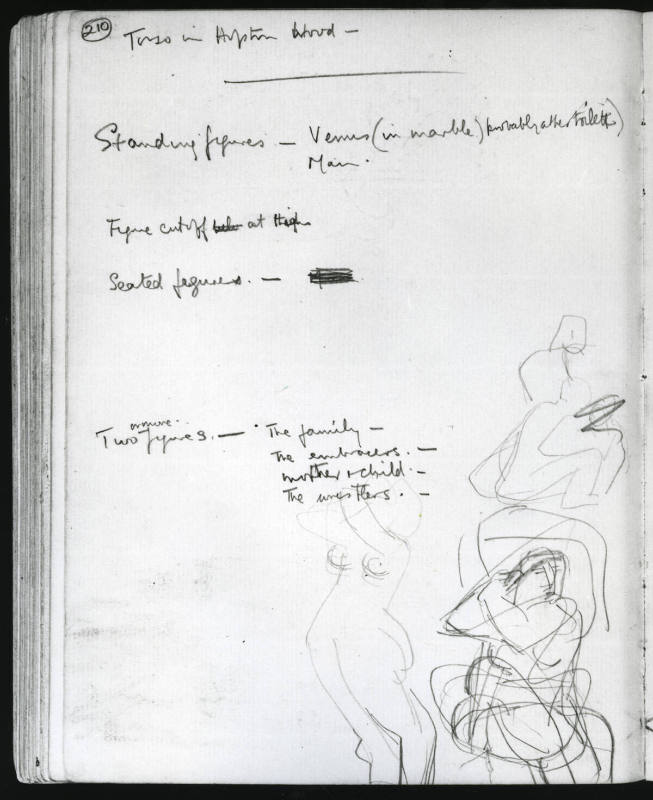 210
Torso in Hopton Wood –
Standing figures – Venus (in marble) (probably at her toilette)
Man.
Figure cut off below at thighs
Seated figures. –
or more..
Two figures. – The family –
The embracers. –
Mother & child. –
The wrestlers. –